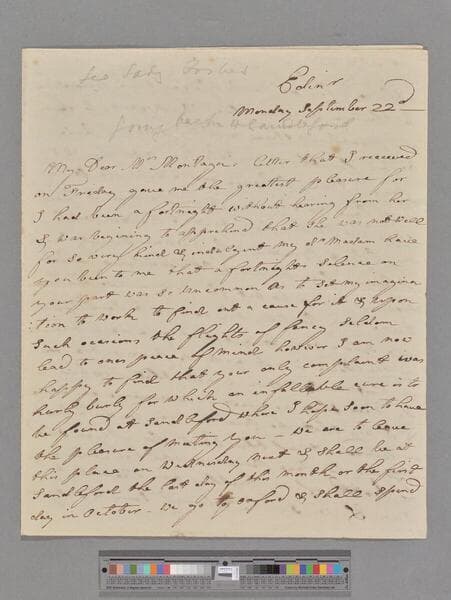 See Lady Forbes
Edinr
Monday September 22d
going back to Sandleford
My Dear Mrs Montagu. Letter that I received
on Tuesday gave me the greatest pleasure for
I had been a fortnight without hearing from her
& was begining to apprehend that she was not well
for so very kind & indulgent my dr Madam have
you been to me that a fortnights silence on
your part was so uncommon as to set my imagina
tion to work to find out a cause for it & upon
such ocasions the flights of fancy seldom
lead to ones peace of mind however I am now
happy to find that your only complaint was
hurly burly for which an infallable cure is to
be found at Sandleford where I hope soon to have
the pleasure of meeting you — we are to leave
this place on Wednesday next & shall be at
Sandleford the last day of this month or the first
day in October — we go by oxford & shall spend